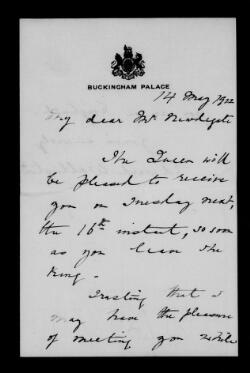 BUCKINGHAM PALACE
14 May 1922
My dear Mr Newdigate
The Queen will
be pleased to receive
you on Tuesday next,
the 16th instant, so soon
as you leave the
King.
Trusting that I
may have the pleasure
of meeting you while